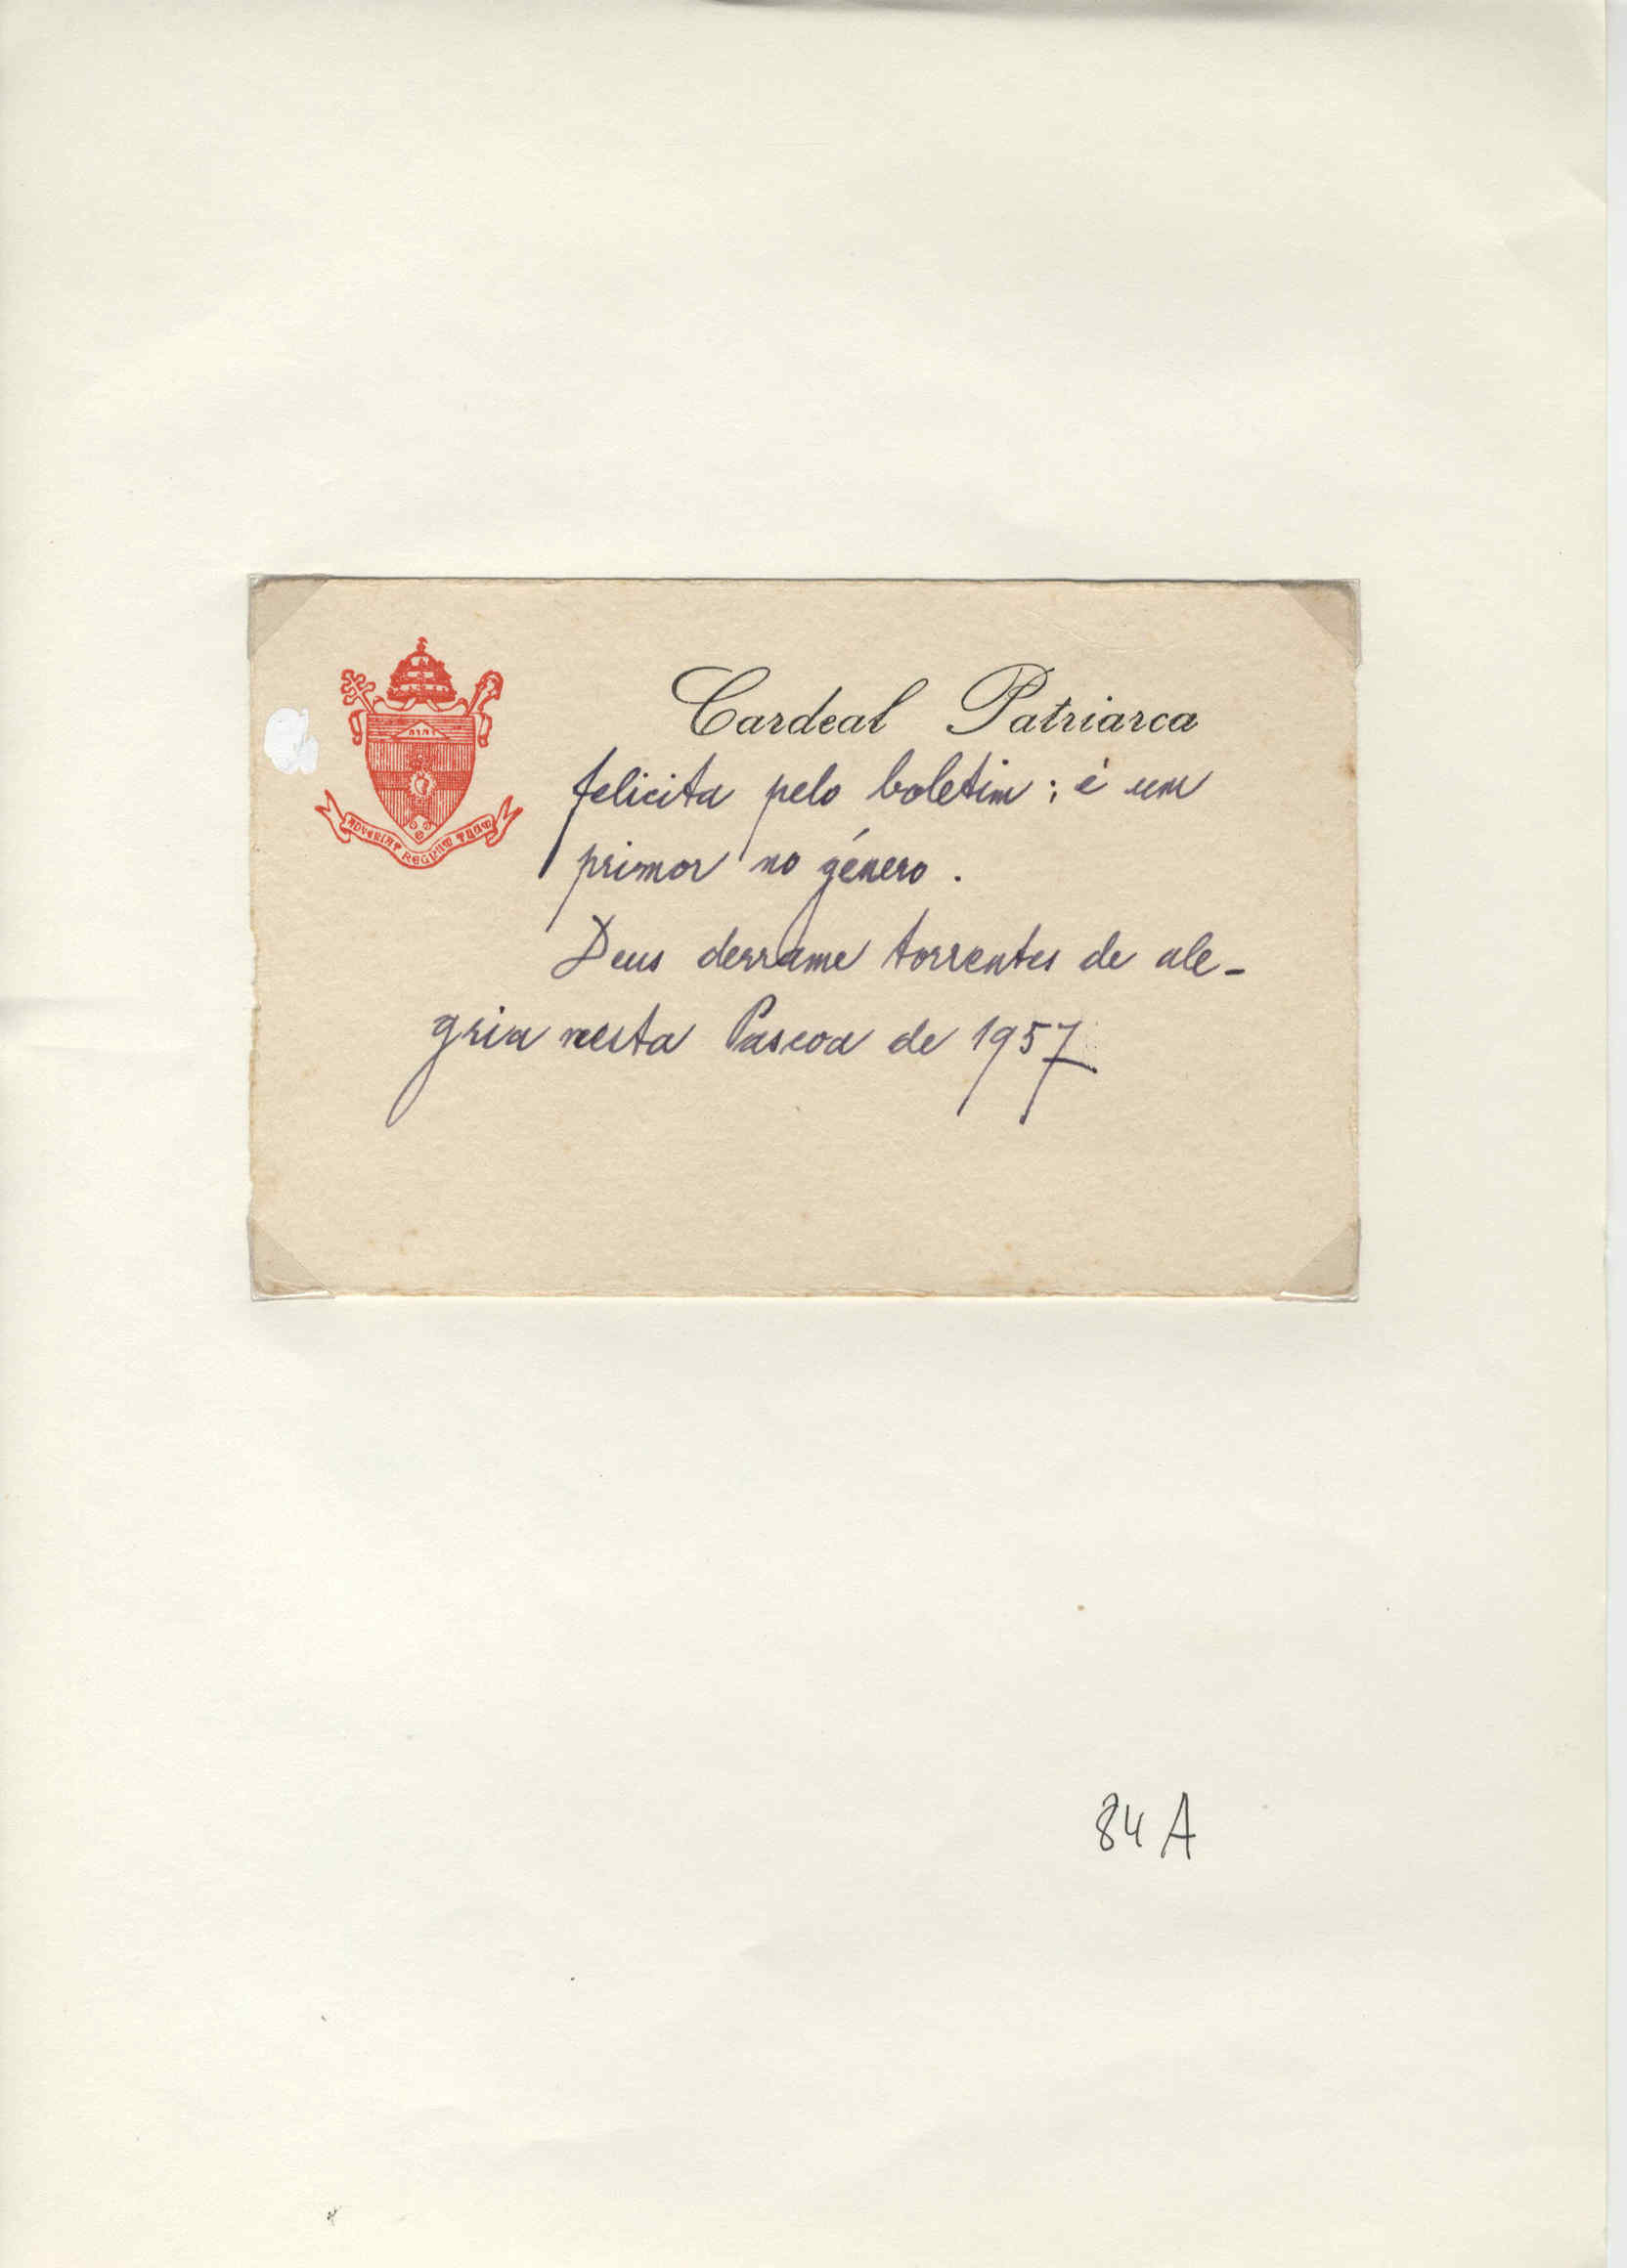 Cardeal Patriarca
ADVENIAT REGNUM TUUM
felicita pelo boletim; é um
primor no género.
Deus derrame torrentes de ale-
gria nesta Pascoa de 1957
84 A